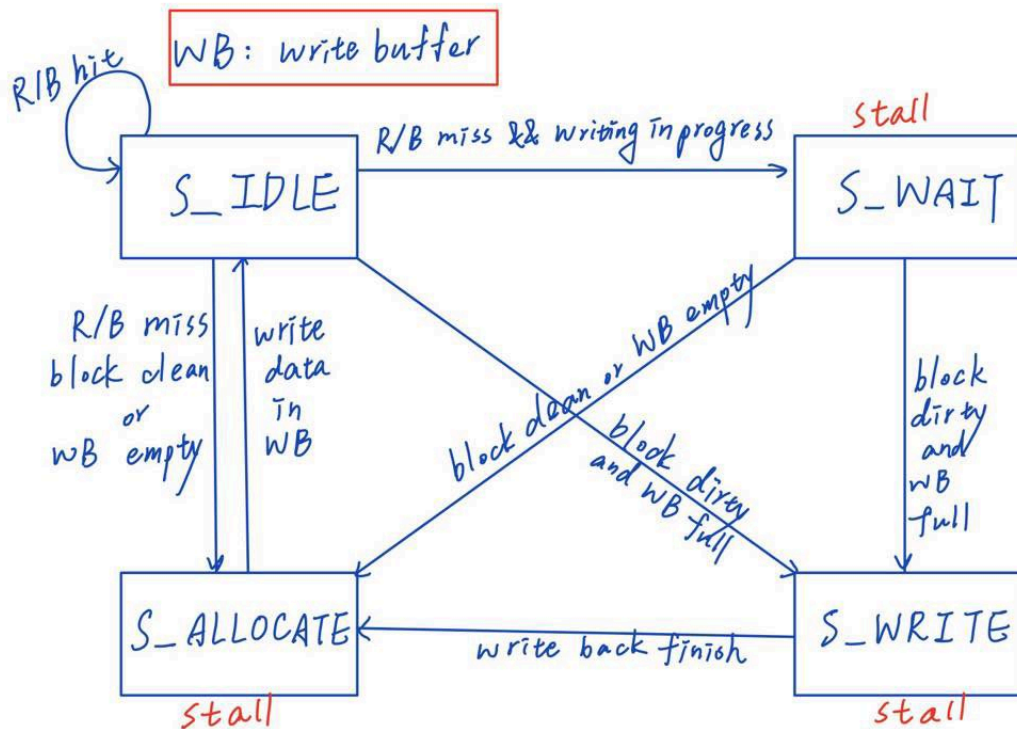 WB: write buffer
R/B hit
S_IDLE
R/B miss && writing in progress
stall
S_WAIT
R/B miss
block clean
or
WB empty
write
data
in
WB
block clean or WB empty
block dirty
and WB full
block
dirty
and
WB
full
S_ALLOCATE
stall
write back finish
S_WRITE
stall